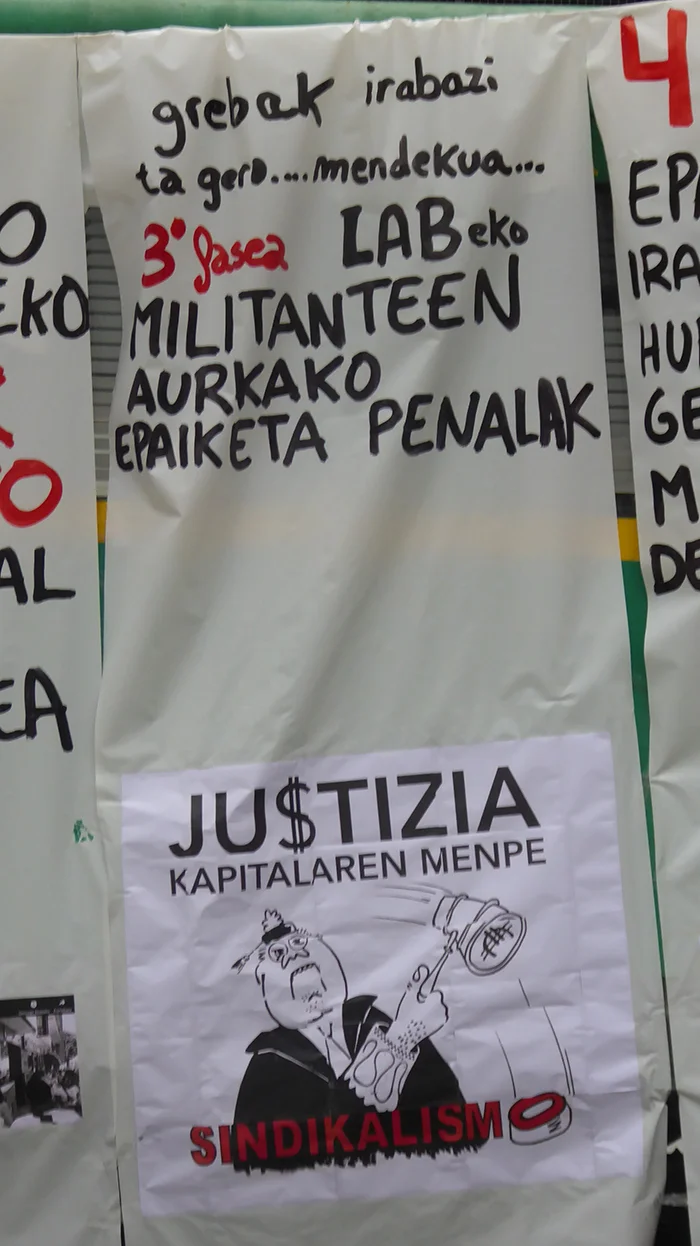 grebak irabazi
ta gero....mendekua...
3º fasea LABeko
MILITANTEEN
AURKAKO
EPAIKETA PENALAK
JU$TIZIA
KAPITALAREN MENPE
SINDIKALISMO
O
EKO
O
AL
EA
4
EPA
IRA
HU
GE
M
DE